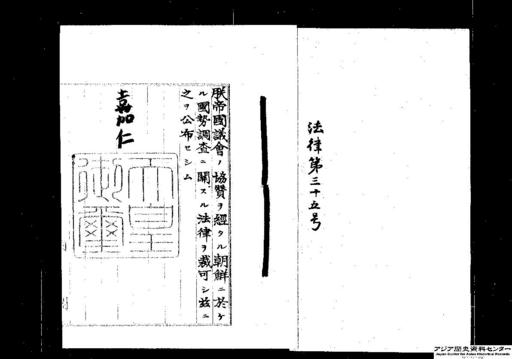 法律第三十五号
朕帝國議會ノ協贊ヲ經タル朝鮮ニ於ケ
ル國勢調査ニ關スル法律ヲ裁可シ茲ニ
之ヲ公布セシム
嘉仁
天皇
御璽
アジア歴史資料センター
Japan Center for Asian Historical Records